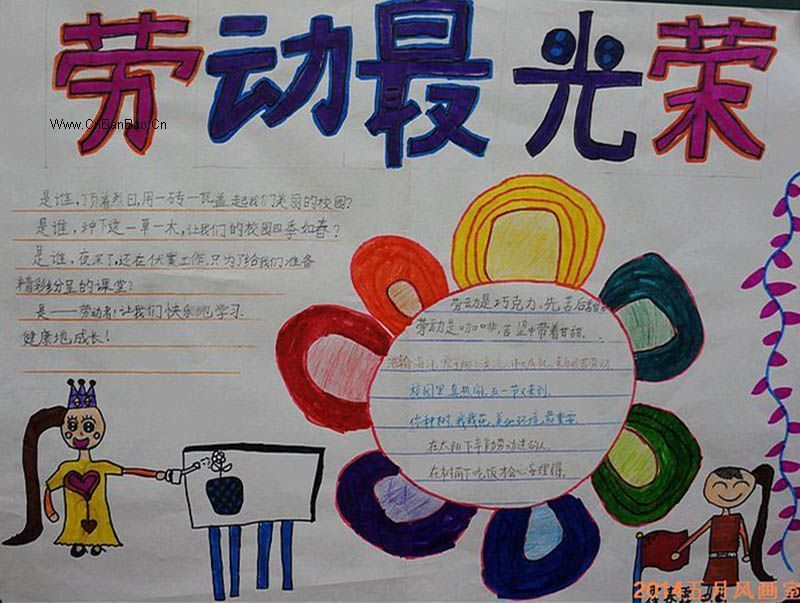 劳动最光荣
Www.CnBanBao.Cn
是谁，顶着烈日，用一砖一瓦盖起我们美丽的校园？
是谁，种下这一草一木，让我们的校园四季如春？
是谁，夜深了，还在伏案工作，只为了给我们准备
精彩纷呈的课堂？
是——劳动者！让我们快乐地学习
健康地成长！
劳动是巧克力，先苦后
劳动是咖啡，苦涩中带着甘甜．．
校园里真热闹，五一节又来到．
你种树，我栽花，美化环境
在太阳下辛勤劳动过的人，
在树荫下吃饭才会心安理得．
2014五月风画室